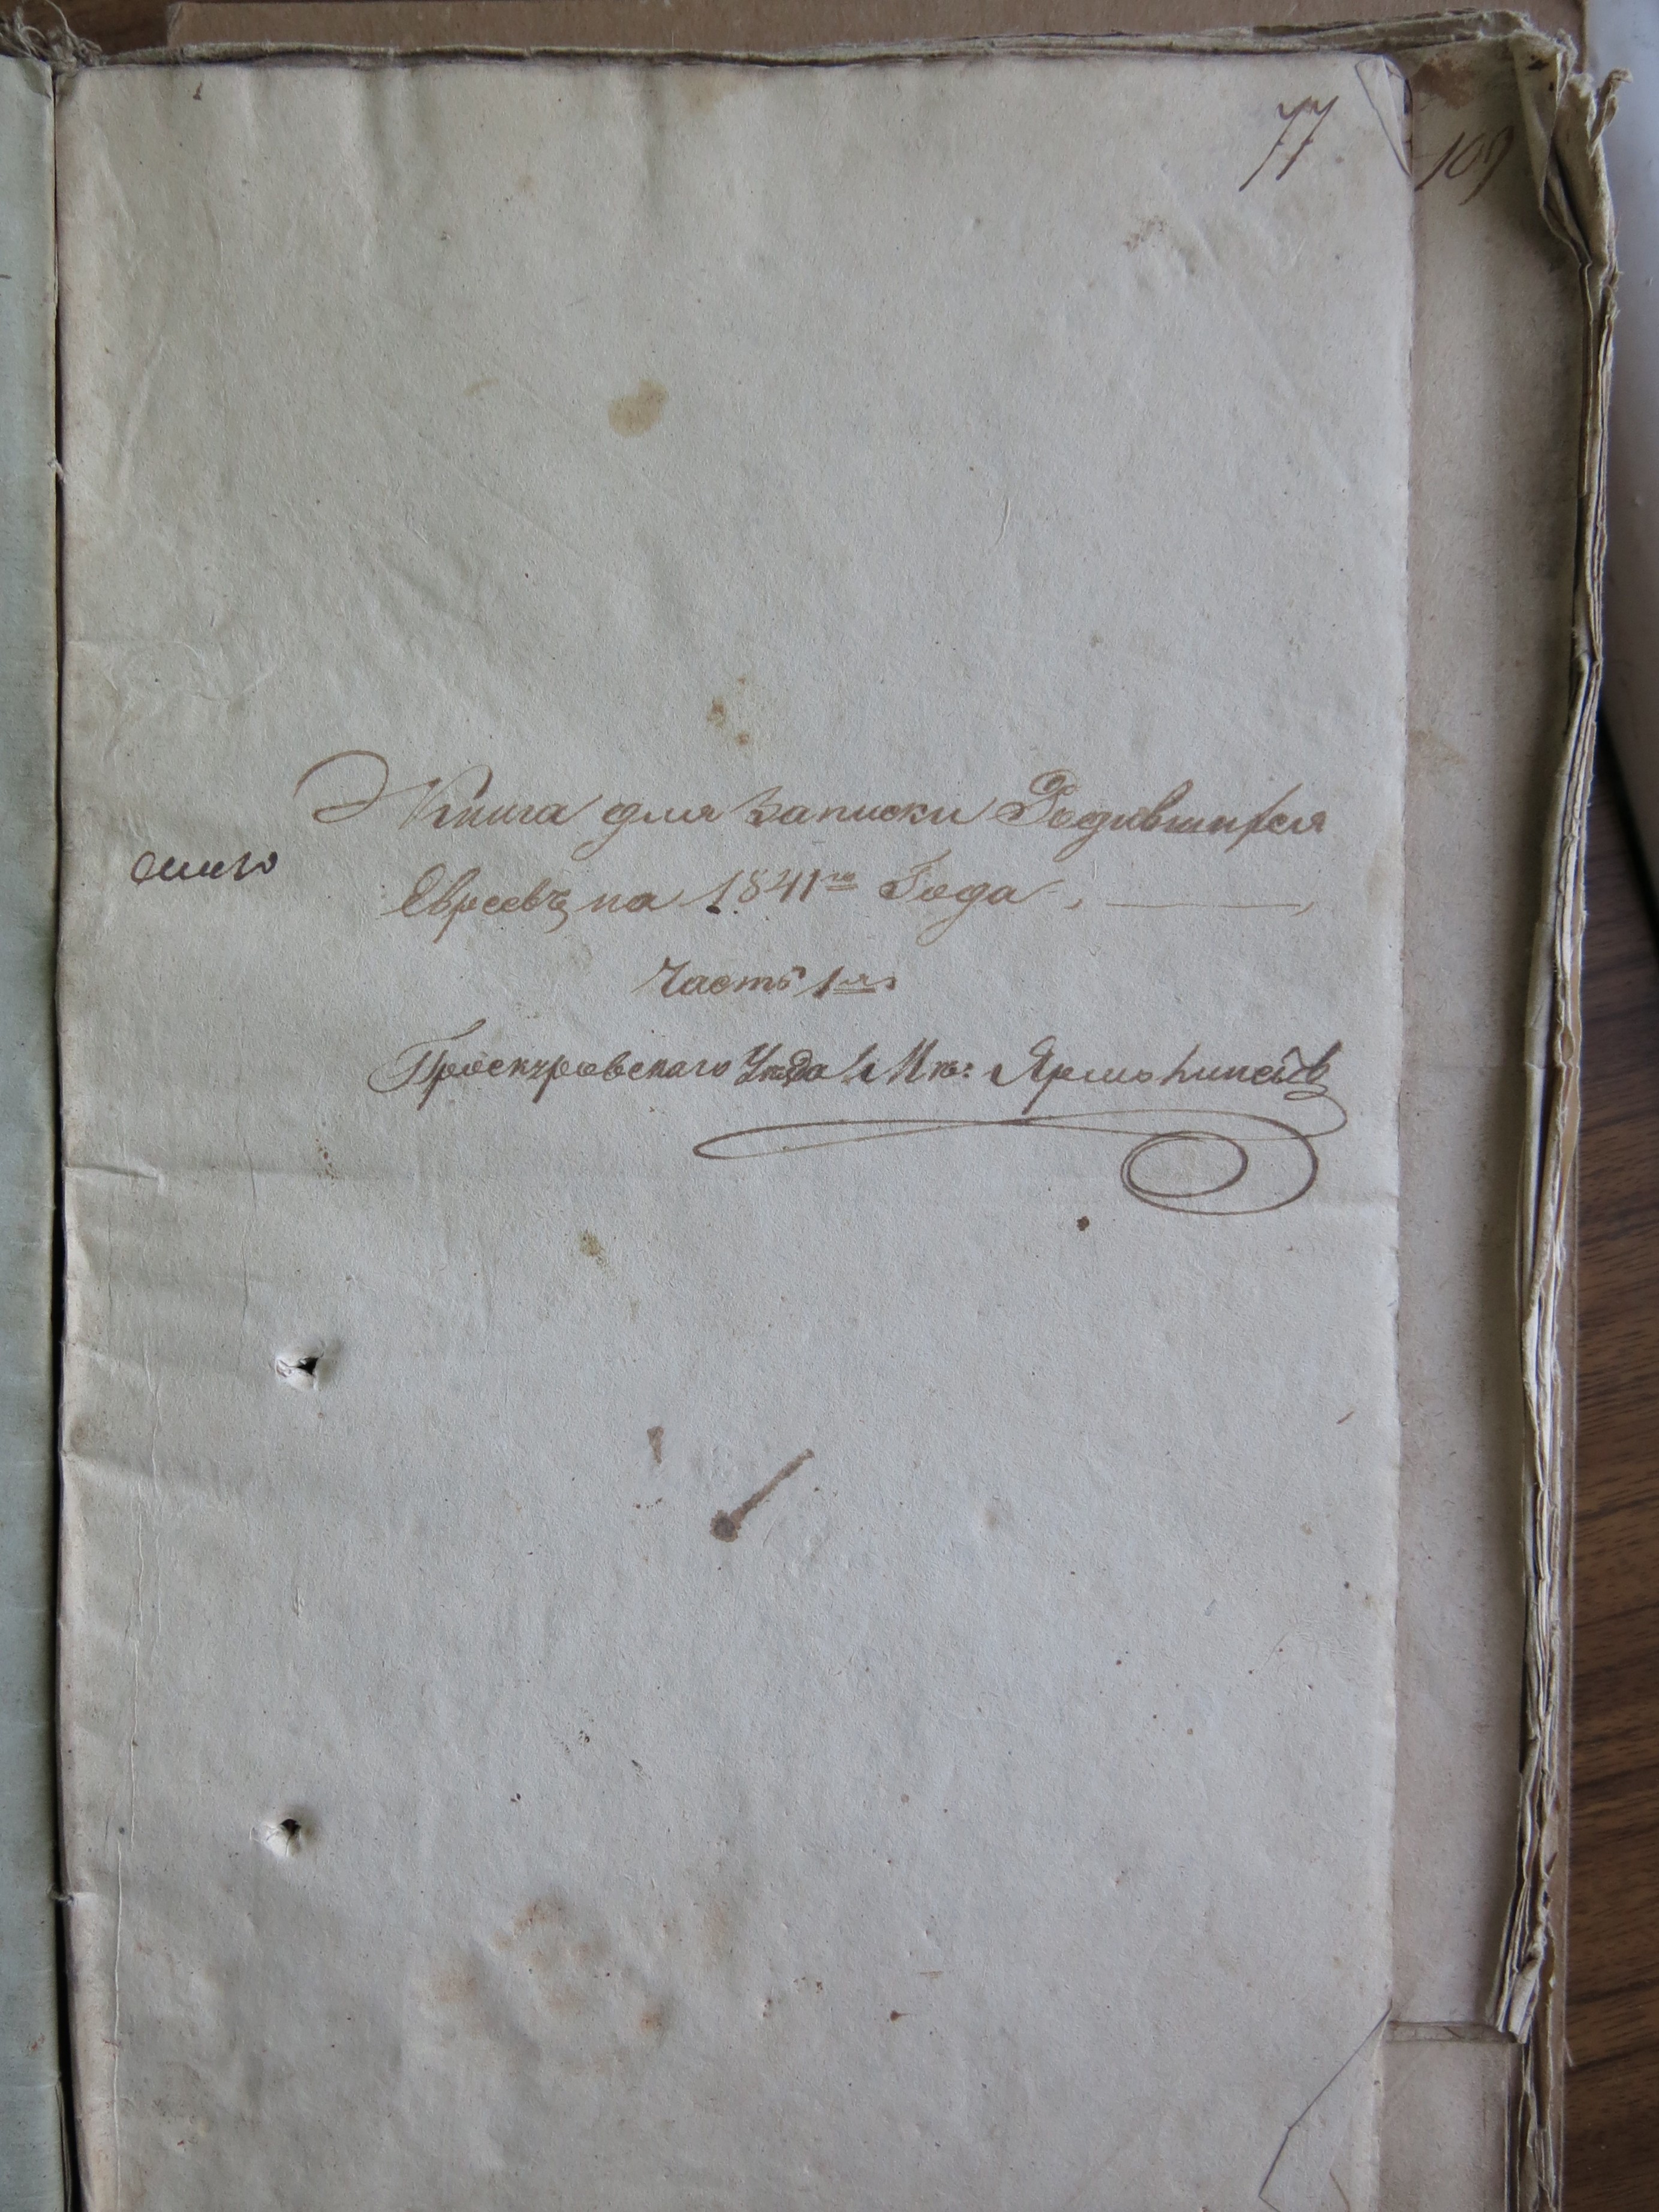 77
109
Книга для Записки Родившихся
Евреевъ на 1841го Года
Часть 1я
Проскуровскаго Уѣзда М: Ярмолинецъ